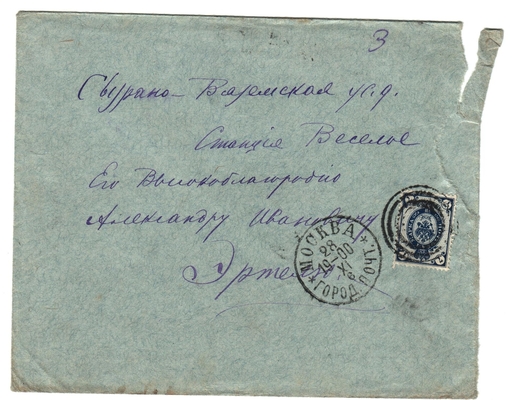 3
Сызрано-Вяземская ж.д.
Станція Веселое
Его Высокоблагородію
Александру Ивановичу
Эртель
МОСКВА
28
XI
ГОРОД. ПОЧТ.